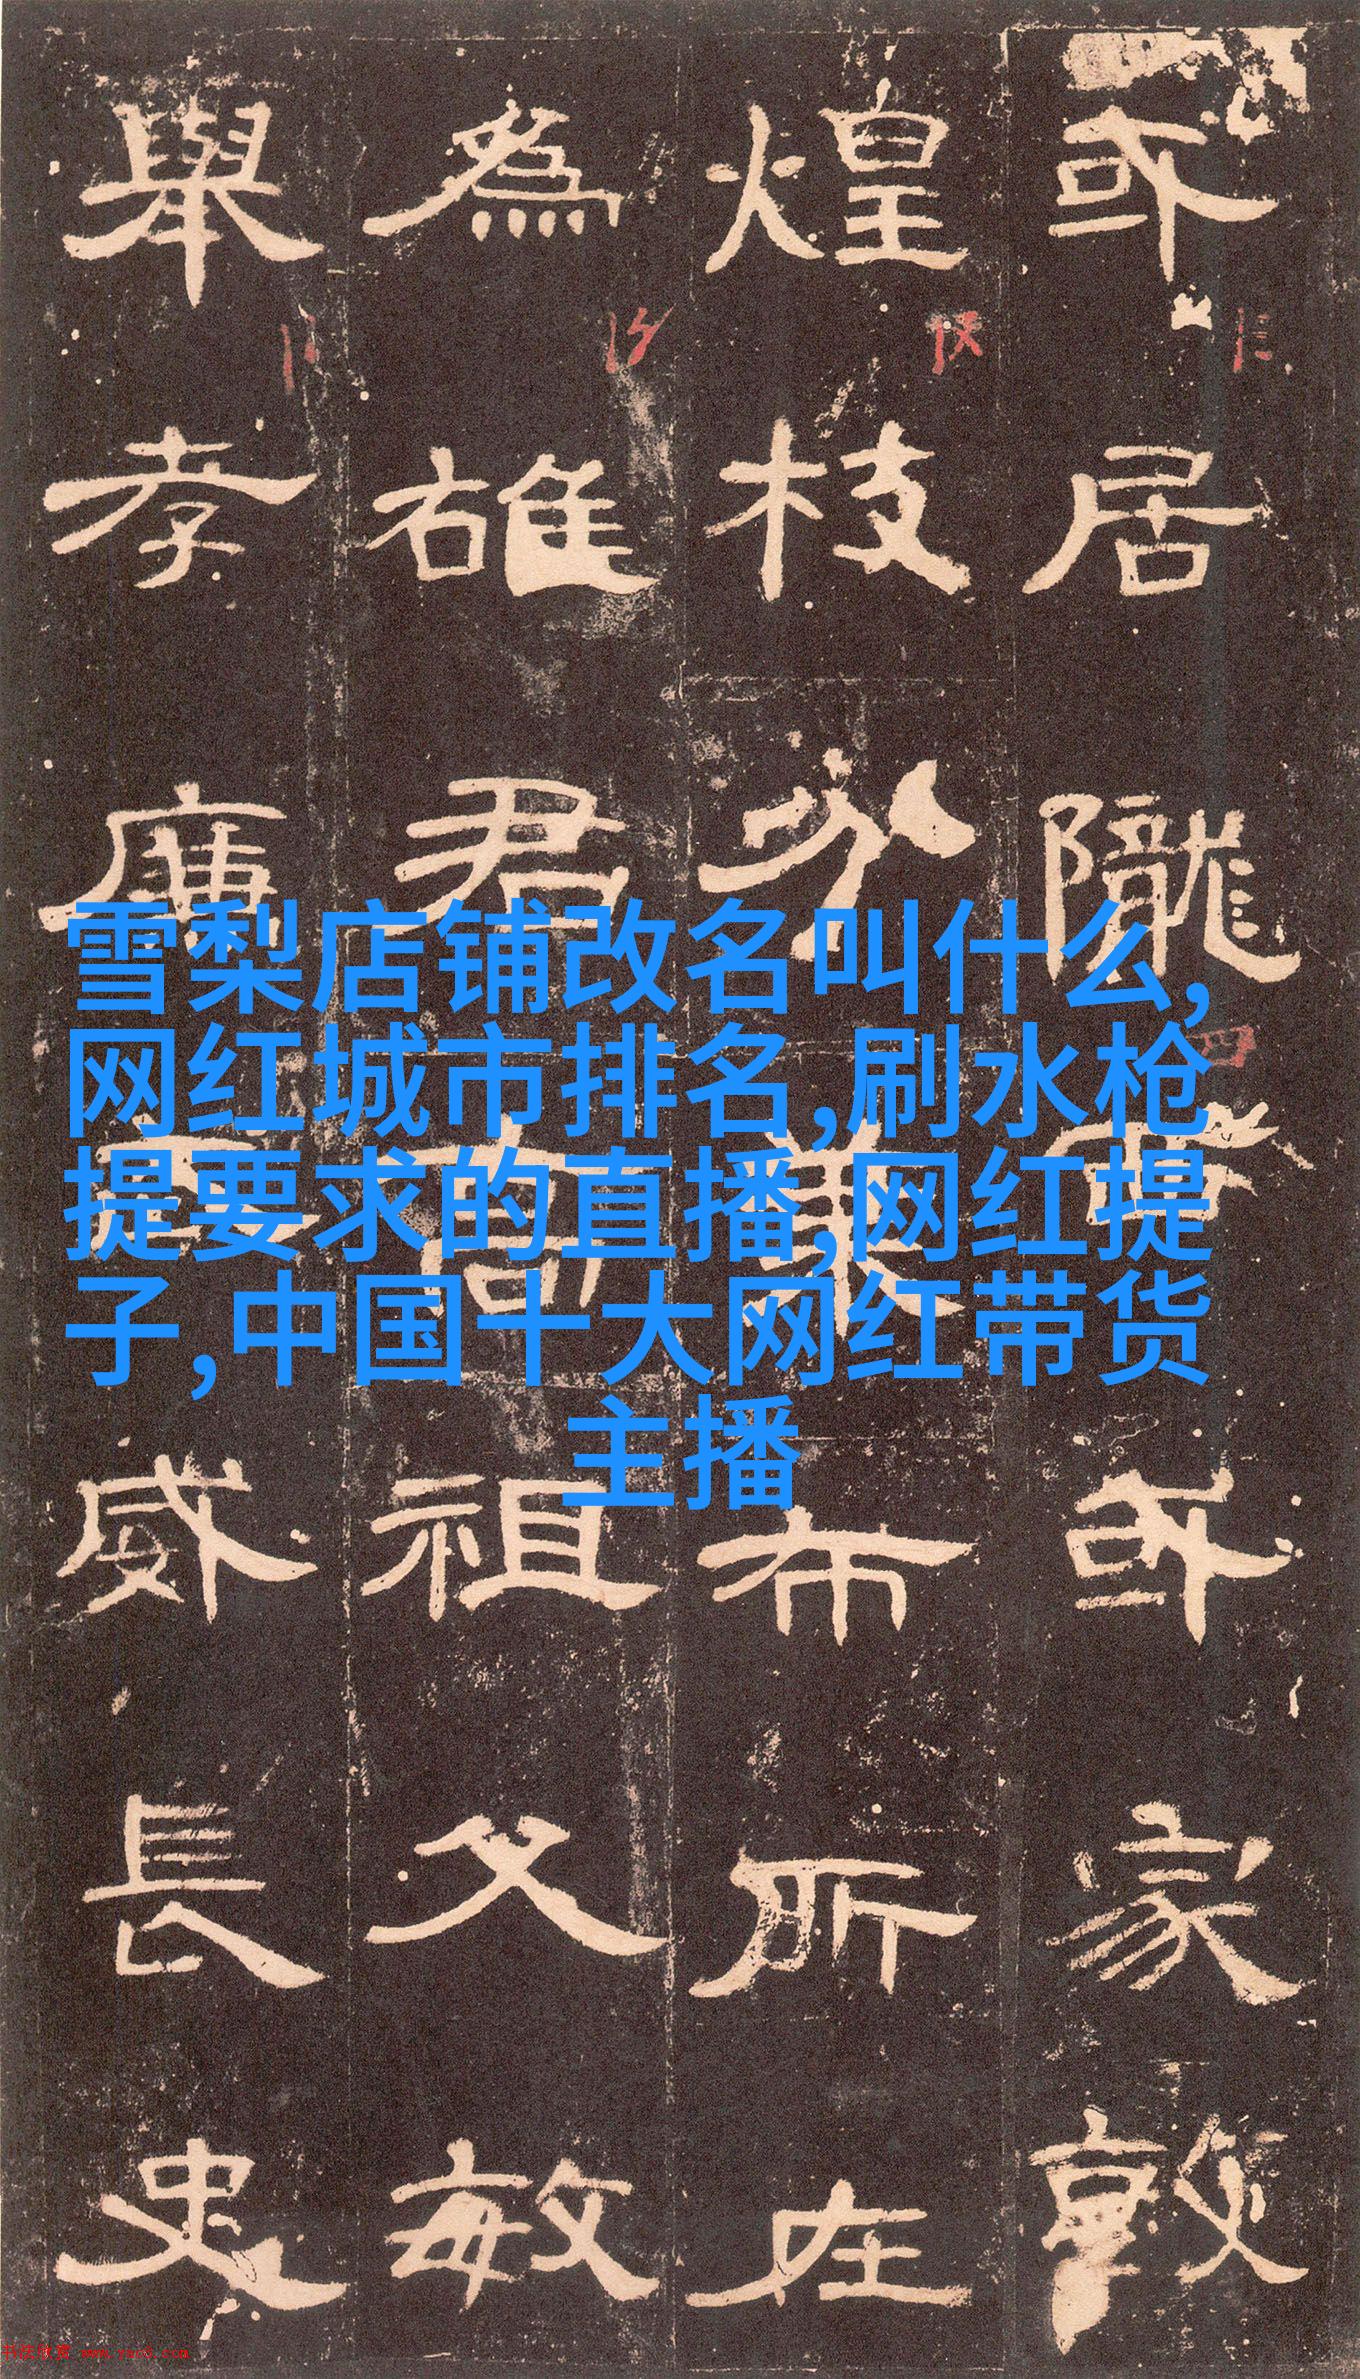 或居隴西或家敦
煌枝分葉布所在
為雄君高祖父敏
舉孝廉武威長史
雪梨店铺改名叫什么,
网红城市排名,刷水枪
提要求的直播,网红提
子,中国十大网红带货
主播
书法欣赏 www.yac8.com